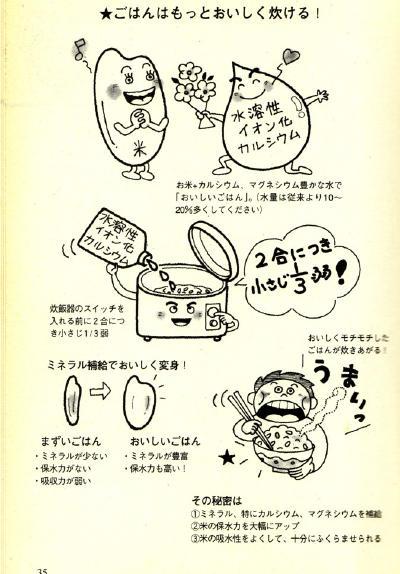 ★ごはんはもっとおいしく炊ける！
米
水溶性
イオン化
カルシウム
お米+カルシウム、マグネシウム豊かな水で
「おいしいごはん」。(水量は従来より10～
20%多くしてください)
水溶性
イオン化
カルシウム
2合につき
小さじ1/3弱！
炊飯器のスイッチを
入れる前に2合につ
き小さじ1/3弱
おいしくモチモチした
ごはんが炊きあがる！
うまりっ
ミネラル補給でおいしく変身！
まずいごはん
・ミネラルが少ない
・保水力がない
・吸収力が弱い
おいしいごはん
・ミネラルが豊富
・保水力も高い！
★
その秘密は
①ミネラル、特にカルシウム、マグネシウムを補給
②米の保水力を大幅にアップ
③米の吸水性をよくして、十分にふくらませられる
35